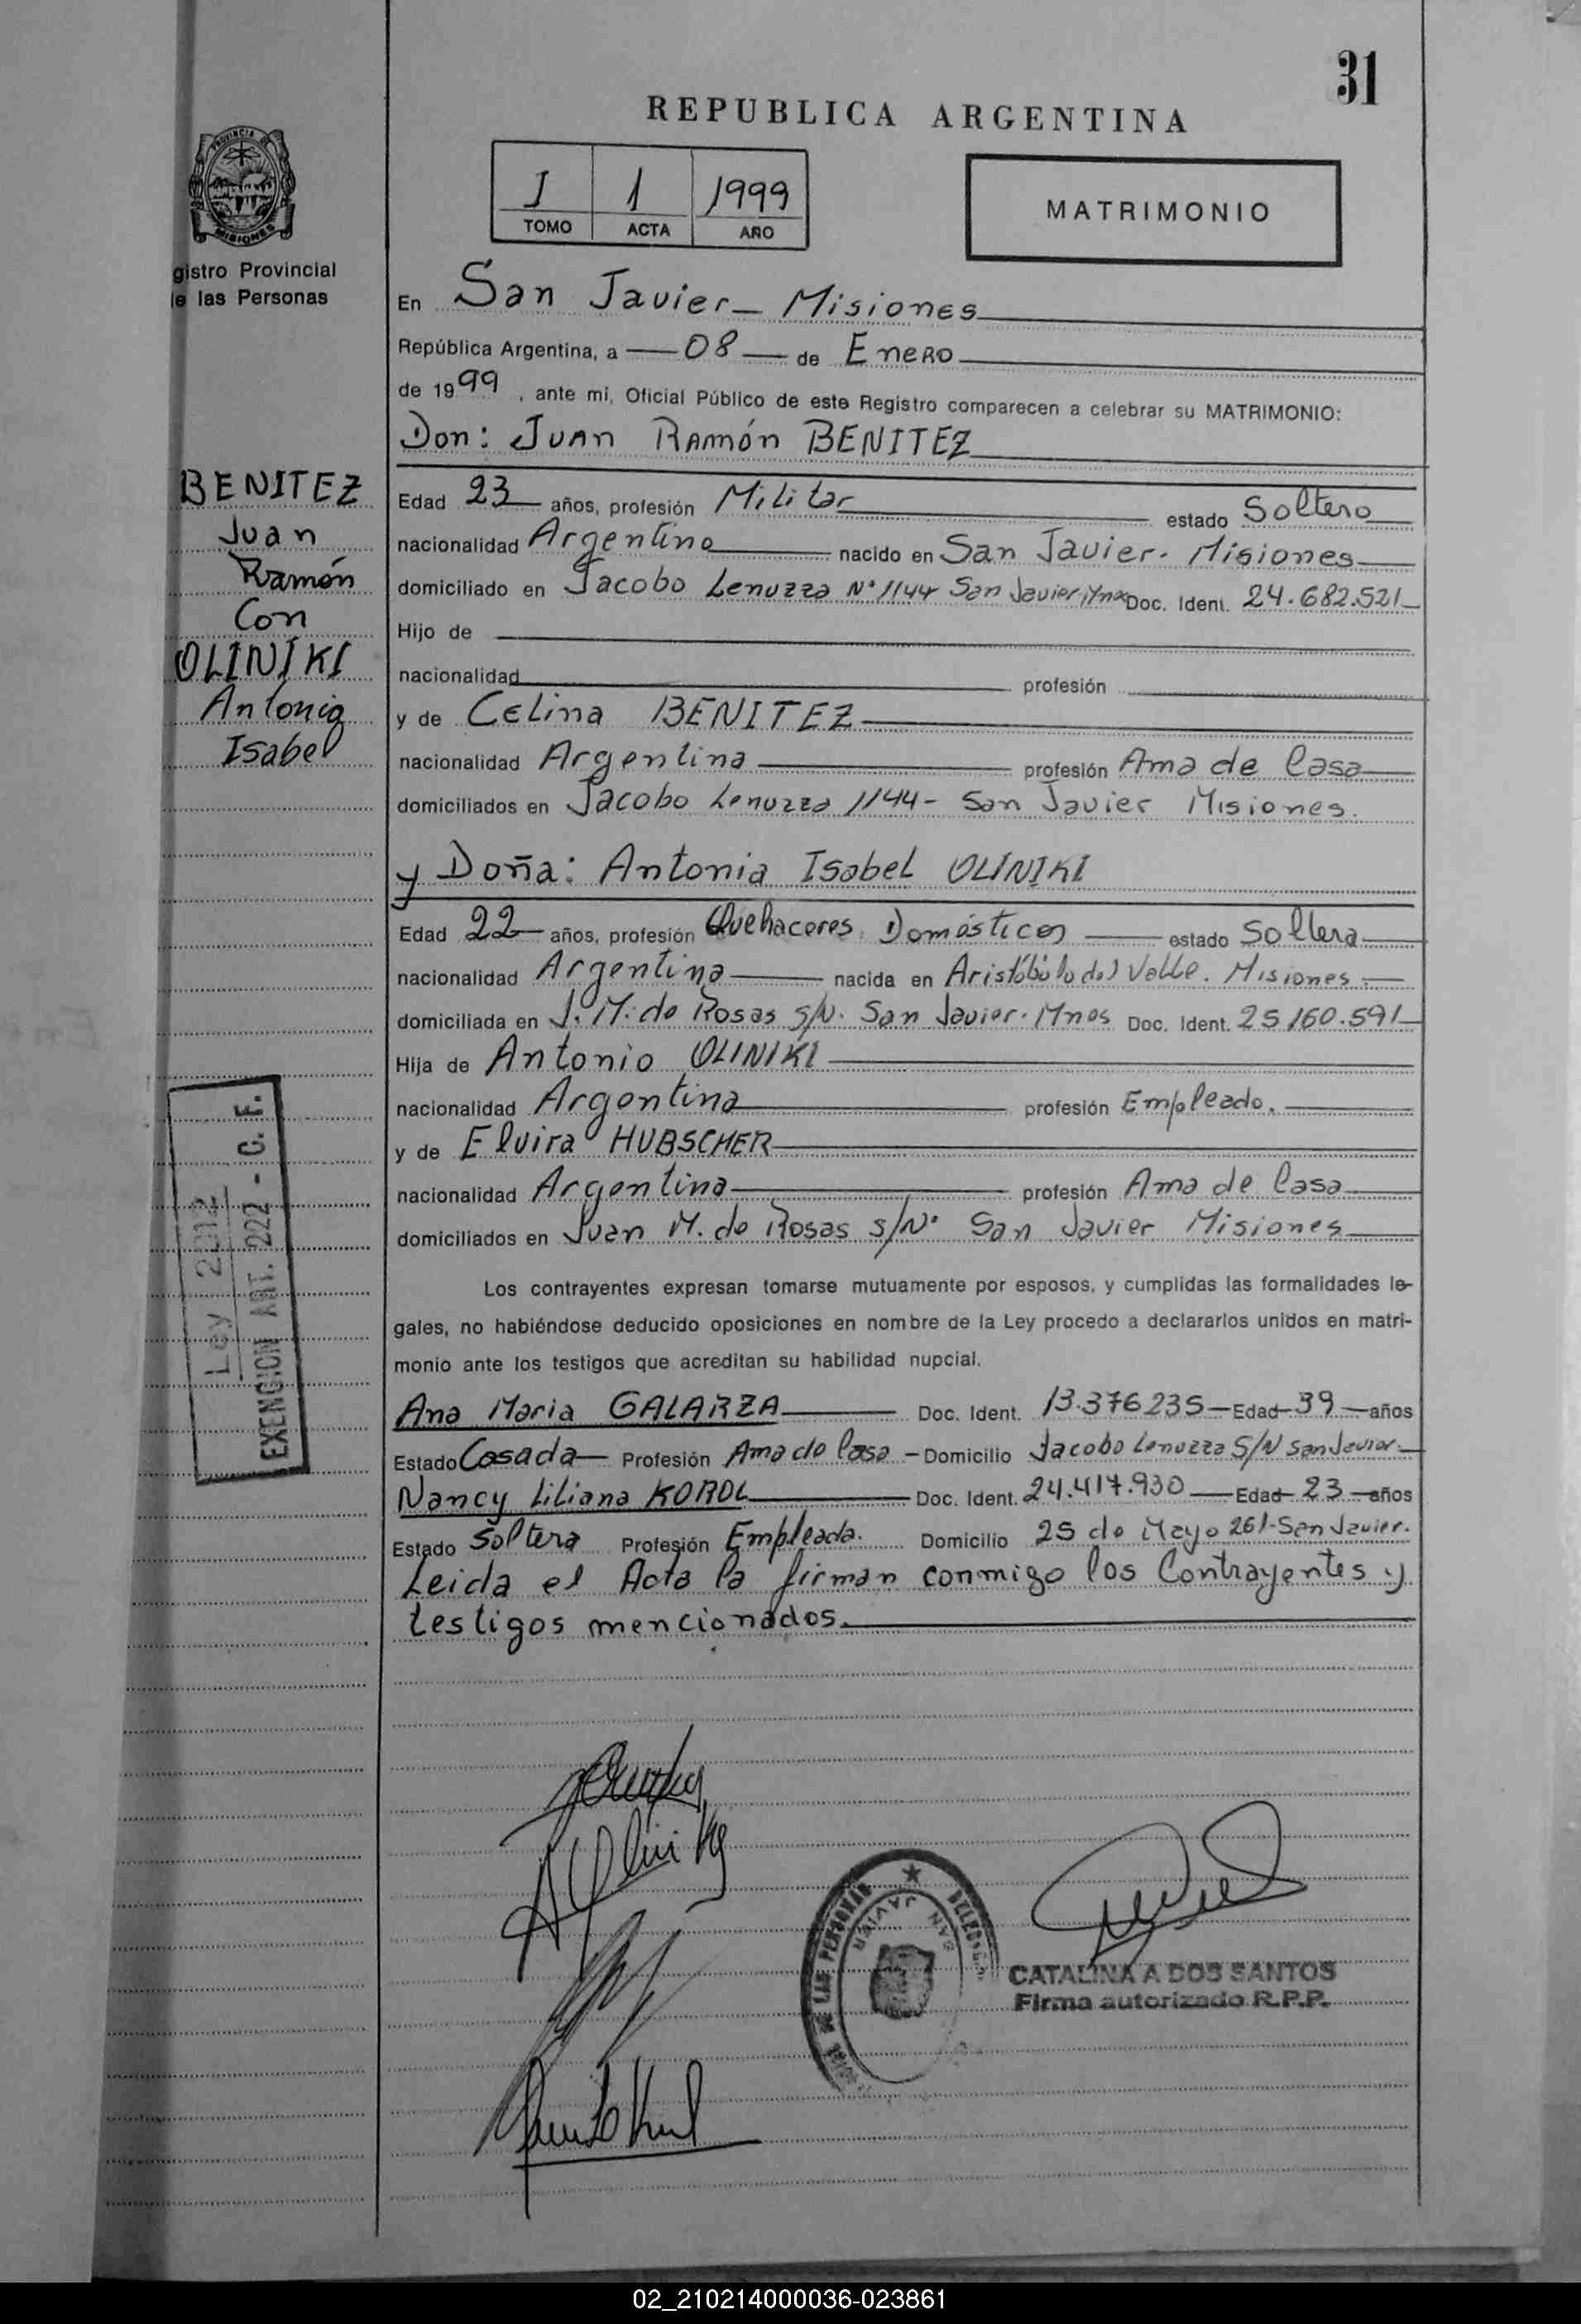 31
REPUBLICA ARGENTINA
PROVINCIA DE
MISIONES
gistro Provincial
e las Personas
I 1 1999
TOMO ACTA AÑO
MATRIMONIO
En San Javier - Misiones
República Argentina, a 08 de Enero
de 1999, ante mí, Oficial Público de este Registro comparecen a celebrar su MATRIMONIO:
Don: Juan Ramón BENITEZ
BENITEZ
Juan
Ramón
Con
OLINIKI
Antonia
Isabel
Edad 23 años, profesión Militar estado Soltero
nacionalidad Argentina nacido en San Javier. Misiones
domiciliado en Jacobo Lenuzza Nº 1144 San Javier Mnes Doc. Ident. 24.682.521
Hijo de
nacionalidad profesión
y de Celina BENITEZ
nacionalidad Argentina profesión Ama de Casa
domiciliados en Jacobo Lenuzza 1144 - San Javier Misiones.
y Doña: Antonia Isabel OLINIKI
Edad 22 años, profesión Quehaceres Domésticos estado Soltera
nacionalidad Argentina nacida en Aristóbulo del Valle. Misiones.
domiciliada en J. M. de Rosas S/N. San Javier. Mnes Doc. Ident. 25160.591
Hija de Antonio OLINIKI
nacionalidad Argentina profesión Empleado.
y de Elvira HUBSCHER
nacionalidad Argentina profesión Ama de Casa
domiciliados en Juan M. de Rosas S/Nº San Javier Misiones
Ley 2012
EXENCION ART. 222 - C. F.
Los contrayentes expresan tomarse mutuamente por esposos, y cumplidas las formalidades le-
gales, no habiéndose deducido oposiciones en nombre de la Ley procedo a declararlos unidos en matri-
monio ante los testigos que acreditan su habilidad nupcial.
Ana Maria GALARZA Doc. Ident. 13.376235 Edad 39 años
Estado Casada Profesión Ama de Casa - Domicilio Jacobo Lenuzza S/N San Javier.
Nancy Liliana KOROL Doc. Ident. 24.417.930 Edad 23 años
Estado Soltera Profesión Empleada. Domicilio 25 de Mayo 261-San Javier.
Leida el Acta la firman conmigo los Contrayentes y
testigos mencionados.
DE LAS PERSONAS
SAN JAVIER
CATALINA A DOS SANTOS
Firma autorizado R.P.P.
02_210214000036-023861